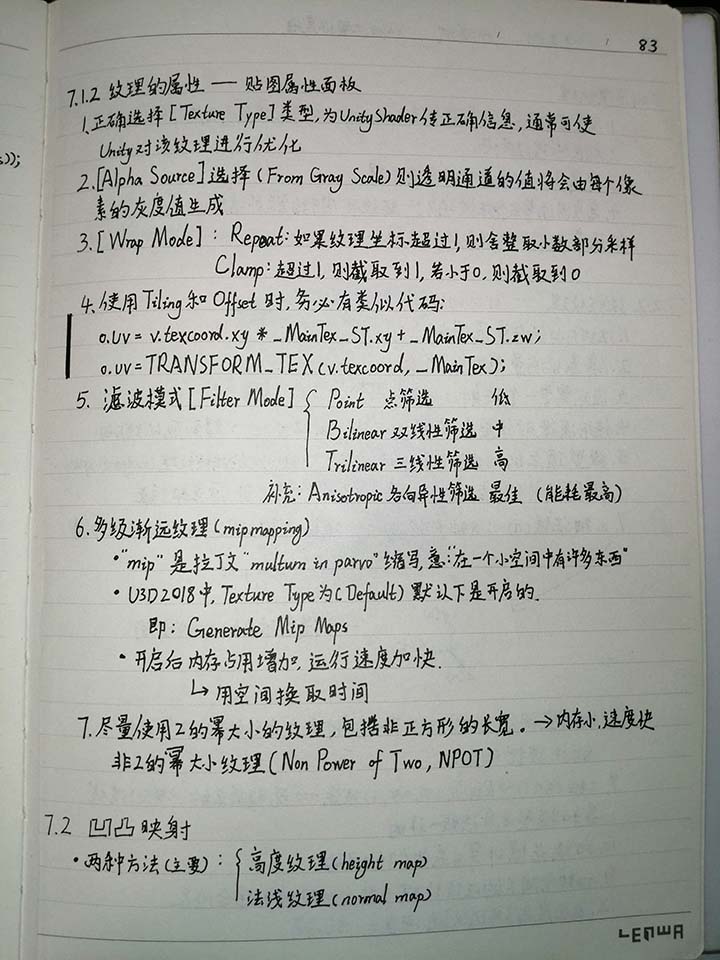 83
7.1.2 纹理的属性 — 贴图属性面板
1. 正确选择[Texture Type]类型,为UnityShader传正确信息,通常可使
Unity对该纹理进行优化
2. [Alpha Source]选择(From Gray Scale)则透明通道的值将会由每个像
素的灰度值生成
3. [Wrap Mode]: Repeat:如果纹理坐标超过1,则舍整取小数部分采样
Clamp:超过1,则截取到1,若小于0,则截取到0
4. 使用Tiling和Offset时,务必有类似代码:
o.uv = v.texcoord.xy * _MainTex_ST.xy + _MainTex_ST.zw;
o.uv = TRANSFORM_TEX(v.texcoord, _MainTex);
5. 滤波模式[Filter Mode] { Point 点筛选 低
Bilinear 双线性筛选 中
Trilinear 三线性筛选 高
补充:Anisotropic各向异性筛选 最佳 (能耗最高)
6. 多级渐远纹理(mipmapping)
•"mip"是拉丁文"multum in parvo"缩写,意:"在一个小空间中有许多东西"
• U3D2018中,Texture Type为(Default)默认下是开启的.
即: Generate Mip Maps
• 开启后内存占用增加,运行速度加快.
↳用空间换取时间
7. 尽量使用2的幂大小的纹理,包括非正方形的长宽。→内存小,速度快
非2的幂大小纹理(Non Power of Two, NPOT)
7.2 凹凸映射
• 两种方法(主要): { 高度纹理(height map)
法线纹理(normal map)
LENWA
));